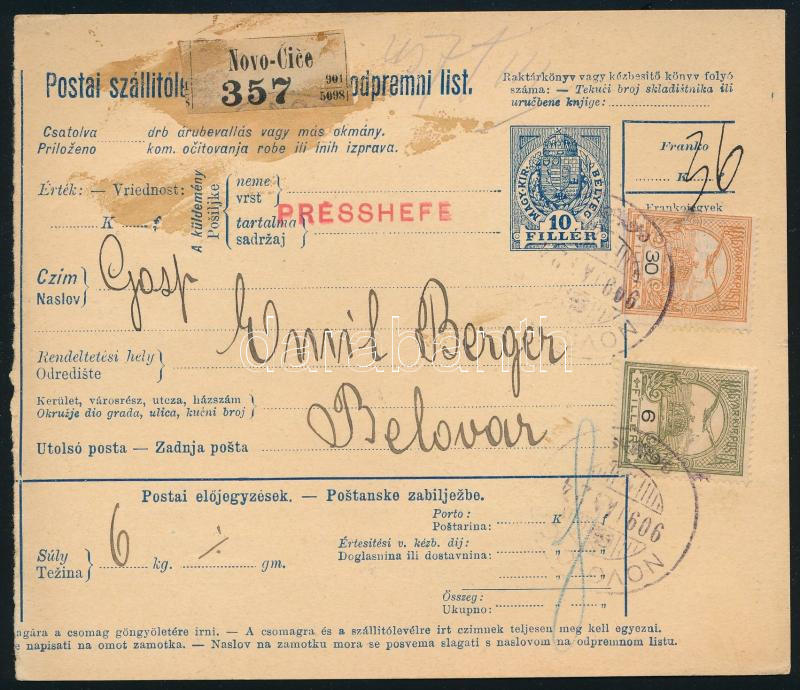 Novo-Čiče
357 901 5098
Postai szállítóle odpremni list.
Raktárkönyv vagy kézbesitő könyv folyó
száma: — Tekući broj skladištnika ili
uručbene knjige:
Csatolva drb árubevallás vagy más okmány.
Priloženo kom. očitovanja robe ili inih izprava.
Franko
K f
36
Frankojegyek
Érték: — Vriednost:
K f
A küldemény
Pošiljke
neme
vrst
tartalma
sadržaj
PRESSHEFE
MAGY. KIR. BÉLYEG
10
FILLÉR
Czim
Naslov
Gosp
Emil Berger
Rendeltetési hely
Odredište
Kerület, városrész, utcza, házszám
Okružje dio grada, ulica, kućni broj
Belovar
Utolsó posta — Zadnja pošta
30
MAGYAR KIR. POSTA
6
FILLÉR
MAGYAR KIR. POSTA
909
NOVO
909
NOVO
darabanth
Postai előjegyzések. — Poštanske zabilježbe.
Súly
Težina
6 kg. ·/· gm.
Porto:
Poštarina:
K f
Értesítési v. kézb. dij:
Doglasnina ili dostavnina:
" "
" "
Összeg:
Ukupno:
" "
agára a csomag göngyöletére irni. — A csomagra és a szállitólevélre irt czimnek teljesen meg kell egyezni.
e napisati na omot zamotka. — Naslov na zamotku mora se posvema slagati s naslovom na odpremnom listu.